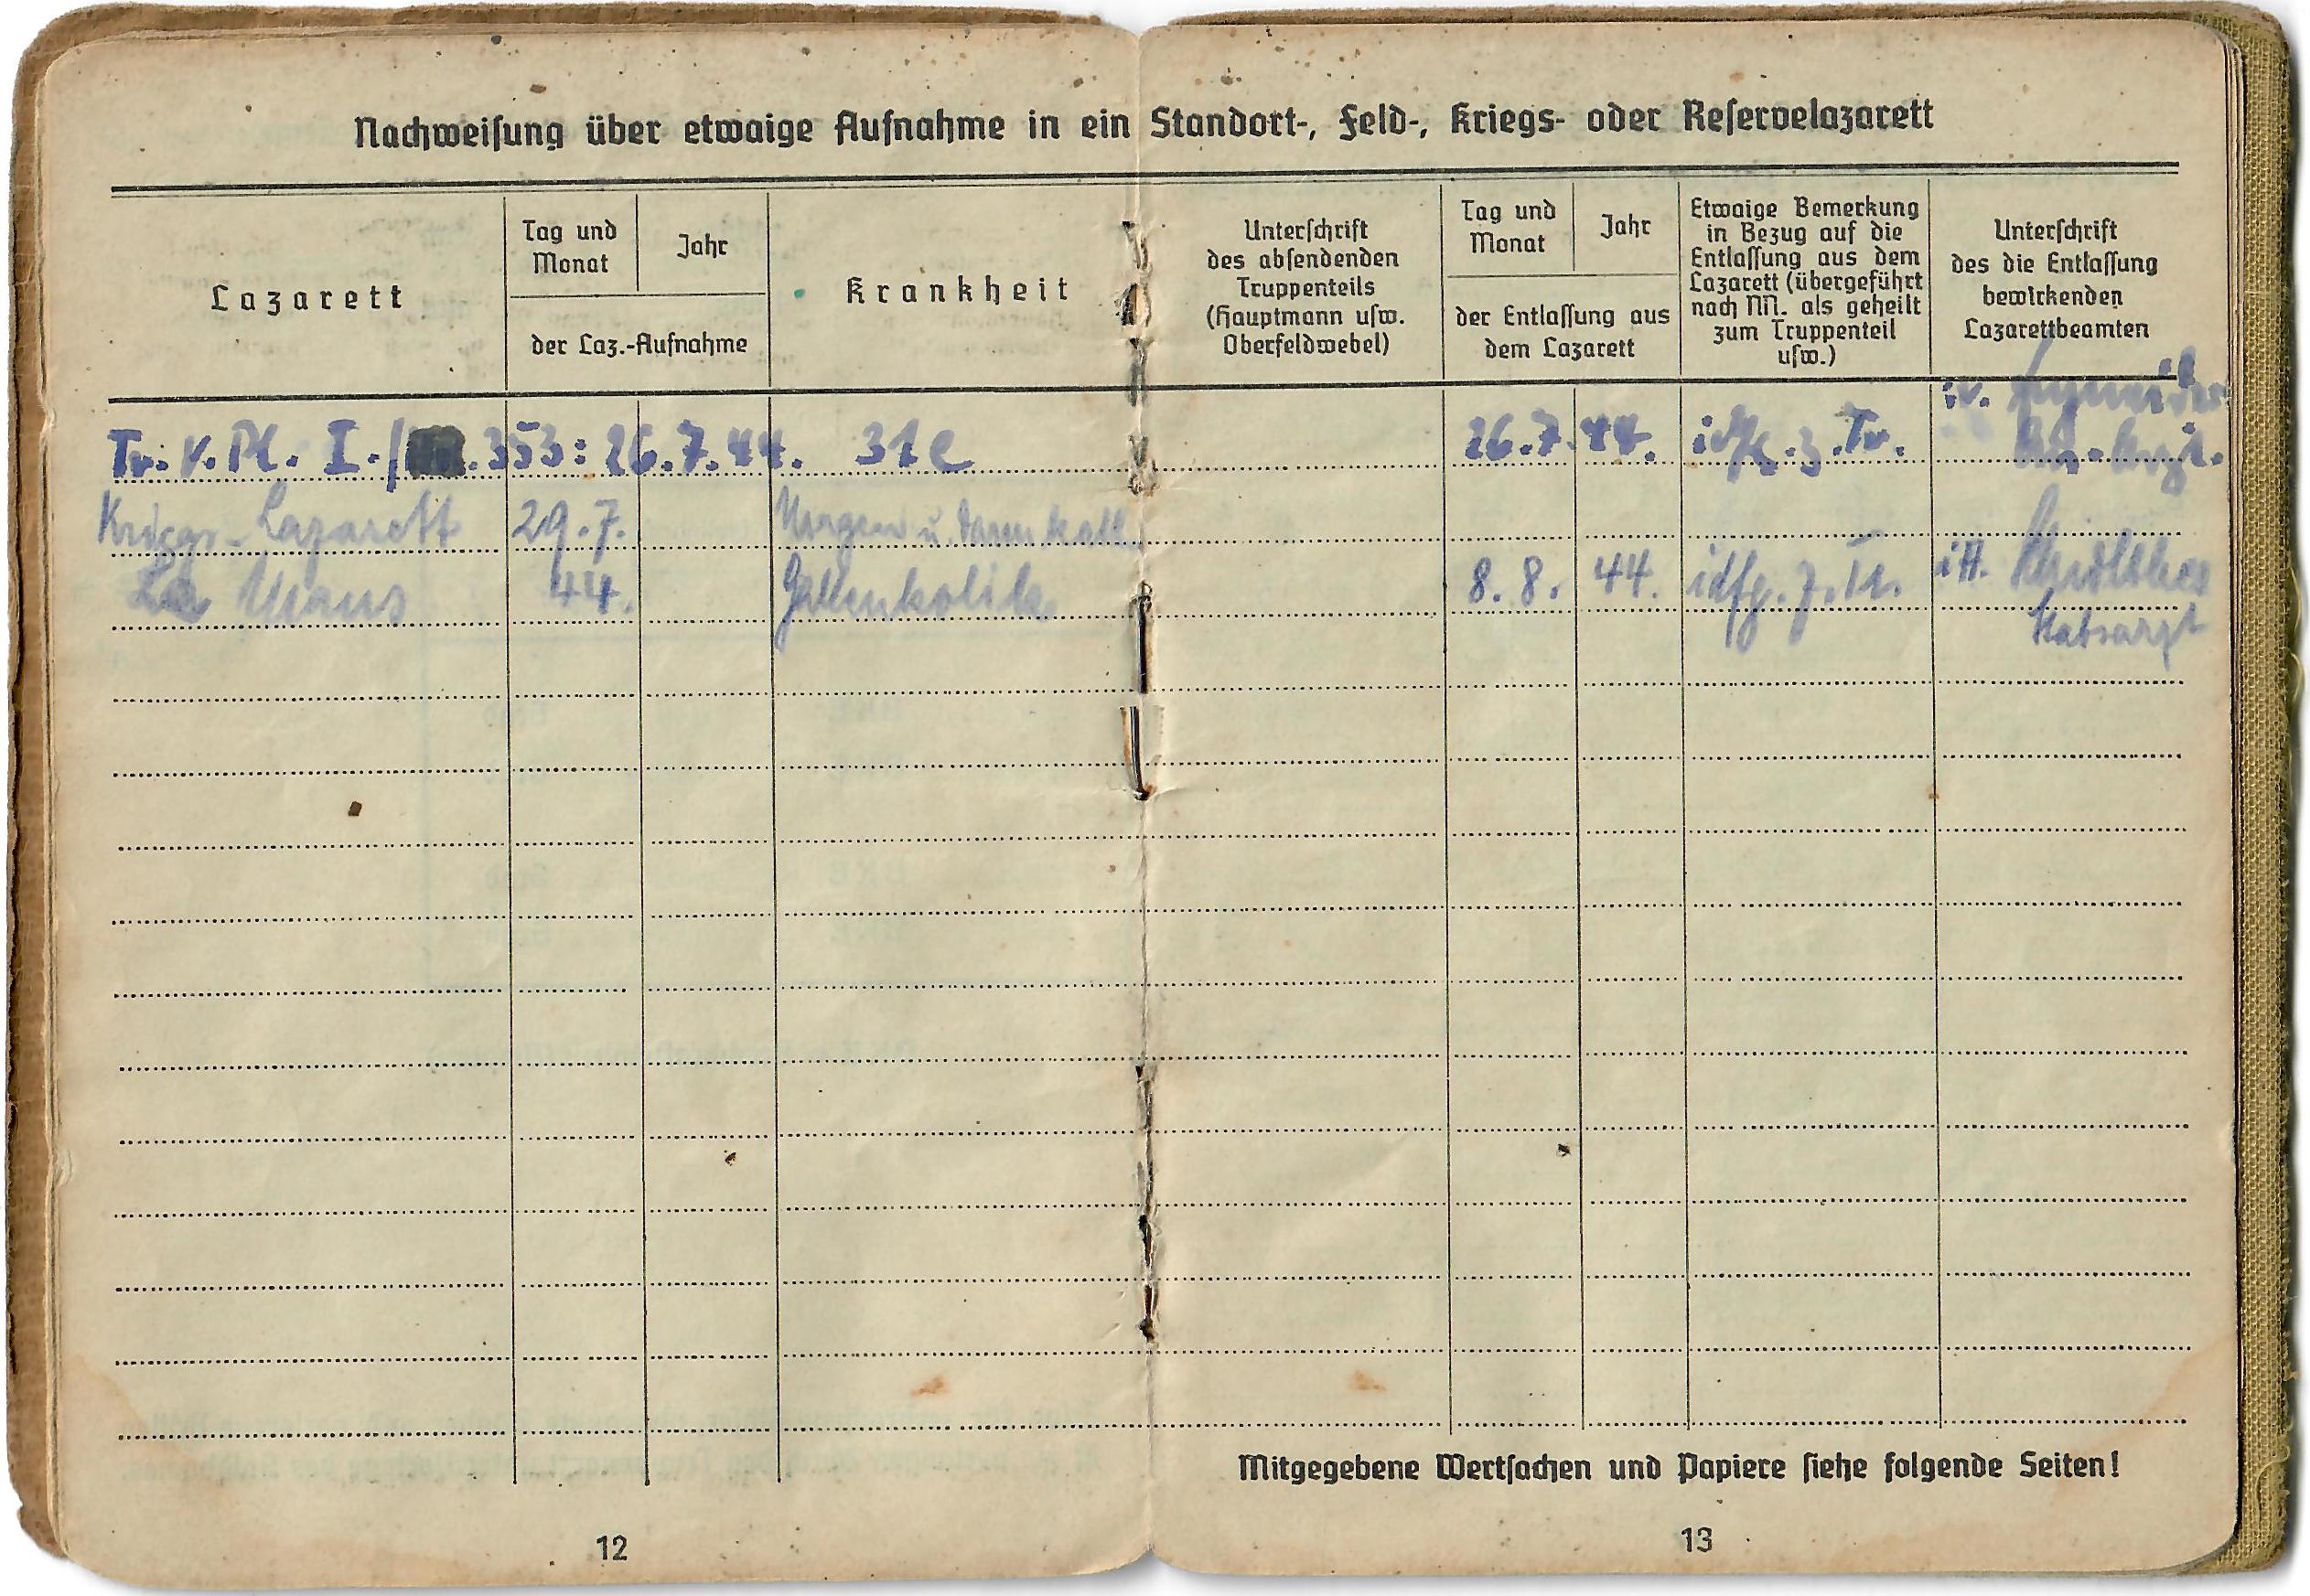 Nachweiſung über etwaige Aufnahme in ein Standort-, Feld-, Kriegs- oder Reſervelazarett
Lazarett
Tag und
Monat
Jahr
der Laz.-Aufnahme
Krankheit
Unterſchrift
des abſendenden
Truppenteils
(Hauptmann uſw.
Oberfeldwebel)
Tag und
Monat
Jahr
der Entlaſſung aus
dem Lazarett
Etwaige Bemerkung
in Bezug auf die
Entlaſſung aus dem
Lazarett (übergeführt
nach NN. als geheilt
zum Truppenteil
uſw.)
Unterſchrift
des die Entlaſſung
bewirkenden
Lazarettbeamten
Tr. V. Pl. I./ .353: 26.7.44. 31e 26.7.44. z. Tr.
Kriegs-Lazarett 29.7. Magen u. Darmkat
Le Mans 44. Gallenkolik 8.8. 44. idfg. z. Tr.
Stabsarzt
Mitgegebene Wertſachen und Papiere ſiehe folgende Seiten!
12
13